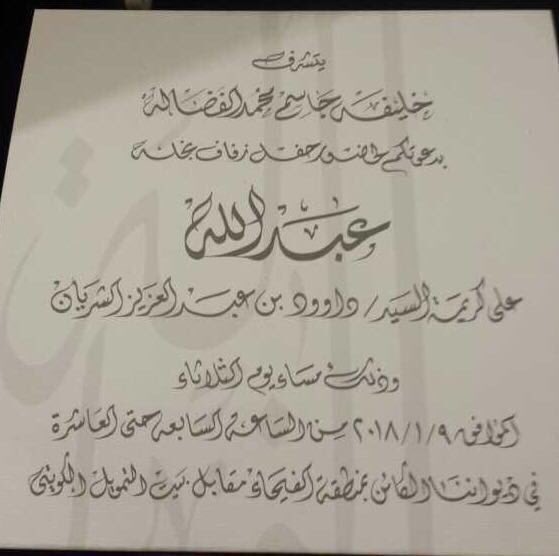 يتشرف
خليفه جاسم محمد الفضاله
بدعوتكم لحضور حفل زفاف نجله
عبدالله
على كريمة السيد/ داوود بن عبدالعزيز الشريان
وذلك مساء يوم الثلاثاء
الموافق ٢٠١٨/١/٩ من الساعة السابعه حتى العاشرة
في ديواننا الكائن بمنطقة الفيحاء مقابل بيت التمويل الكويتي